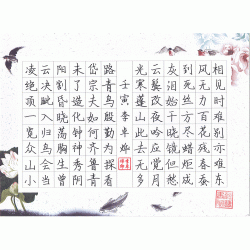 相见时难别亦难东
风无力百花残春蚕
到死丝方尽蜡炬成
灰泪始干晓镜但愁
云鬓改夜吟应觉月
光寒蓬山此去无多
壬寅李卓
路青鸟殷勤为探看
岱宗夫如何齐鲁青
未了造化钟神秀阴
阳割昏晓荡胸生曾
云决眦入归鸟会当
凌绝顶一览众山小